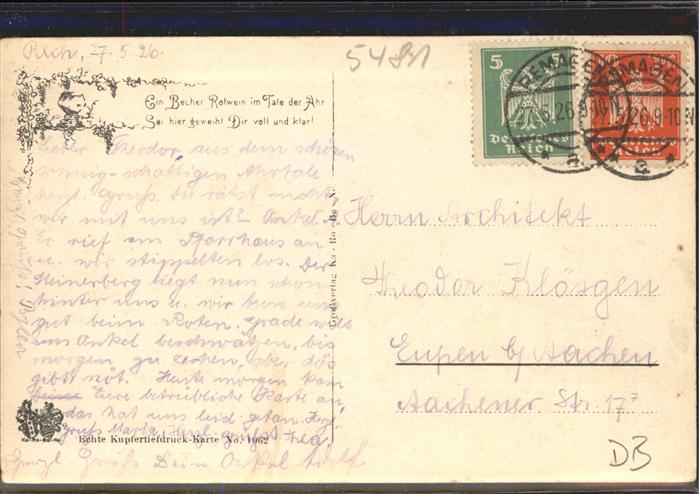 Rech, 27.5.26.
5481
Ein Becher Rotwein im Tale der Ahr
Sei hier geweiht Dir voll und klar!
5
Deutsches
Reich
10
Deutsches
Reich
REMAGEN
26.9-10N
a
REMAGEN
26.9-10N
a
Lieber Theodor, aus dem schönen
sonnig-schattigen Ahrtale
herzl. Gruß. Du rätst nicht,
wer mit uns ist? Onkel.
Er rief am Pfarrhaus an
u. wir stippelten los. Der
Steinerberg liegt nun schon
hinter uns u. wir tun uns
gut beim Roten. Grade will
uns Onkel beschwätzen, bis
morgen zu zechen, aber dös
gibts nöt. Heute morgen kam
Eure betrübliche Karte an,
das hat uns leid getan. Herzl.
Gruß Maria. Herzl. grüßt
Herzl. Grüße Dein Onkel Adolf
Herzl. Grüße,
Echte Kupfertiefdruck-Karte No. 1962
Großverlag
Herrn Architekt
Theodor Klösgen
Eupen b/ Aachen
Aachener Str. 17
DB